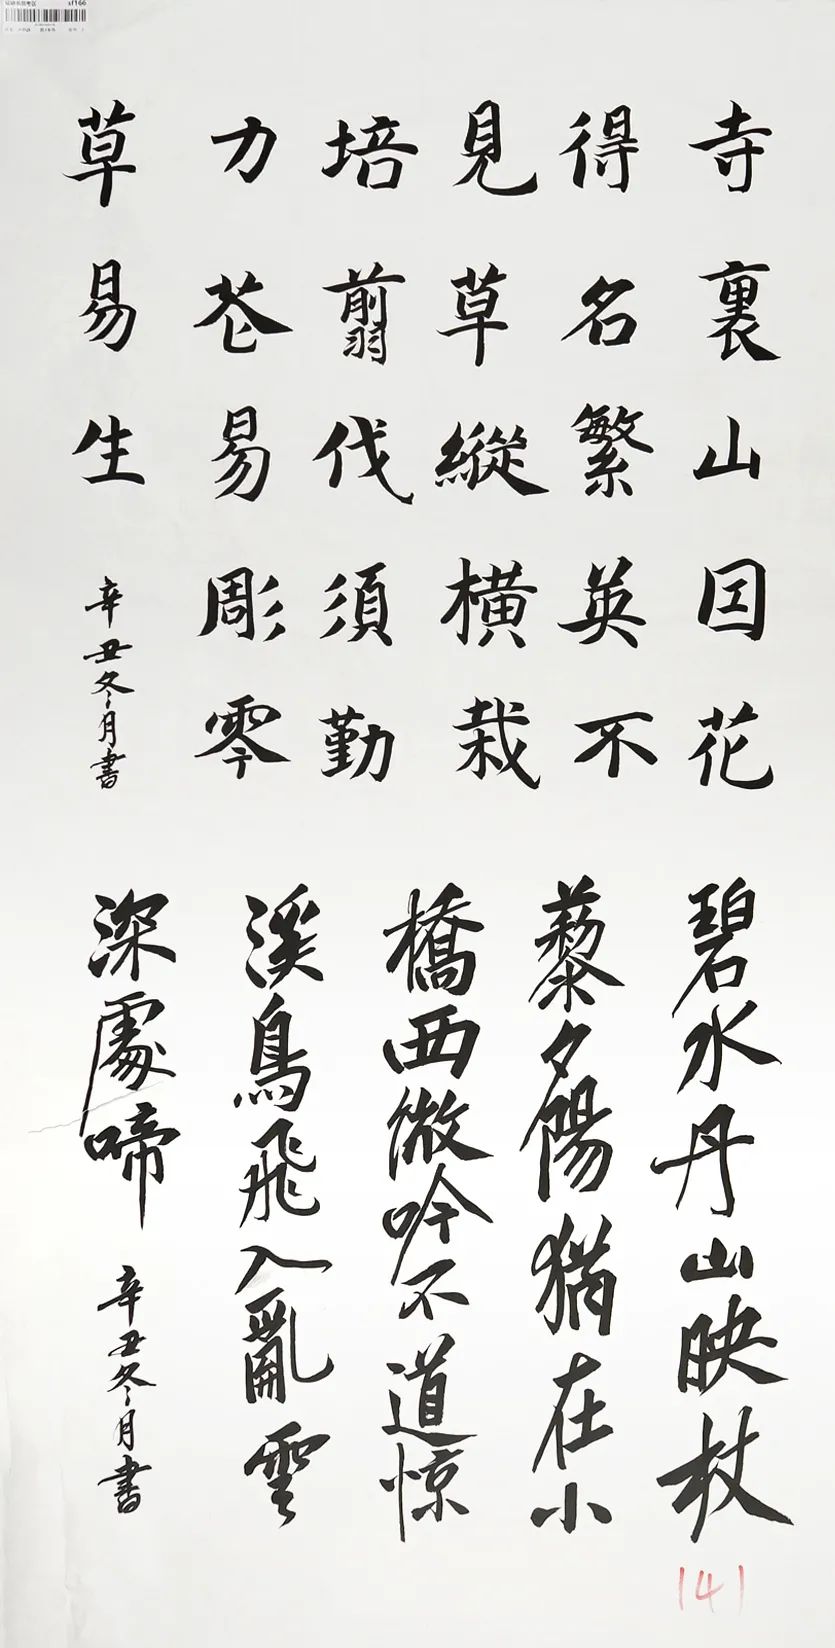 sf166
寺裏山因花
得名繁英不
見草縱橫栽
培翦伐須勤
力花易彫零
草易生
辛丑冬月書
碧水丹山映杖
藜夕陽猶在小
橋西微吟不道惊
溪鳥飛入亂雲
深處啼
辛丑冬月書
141